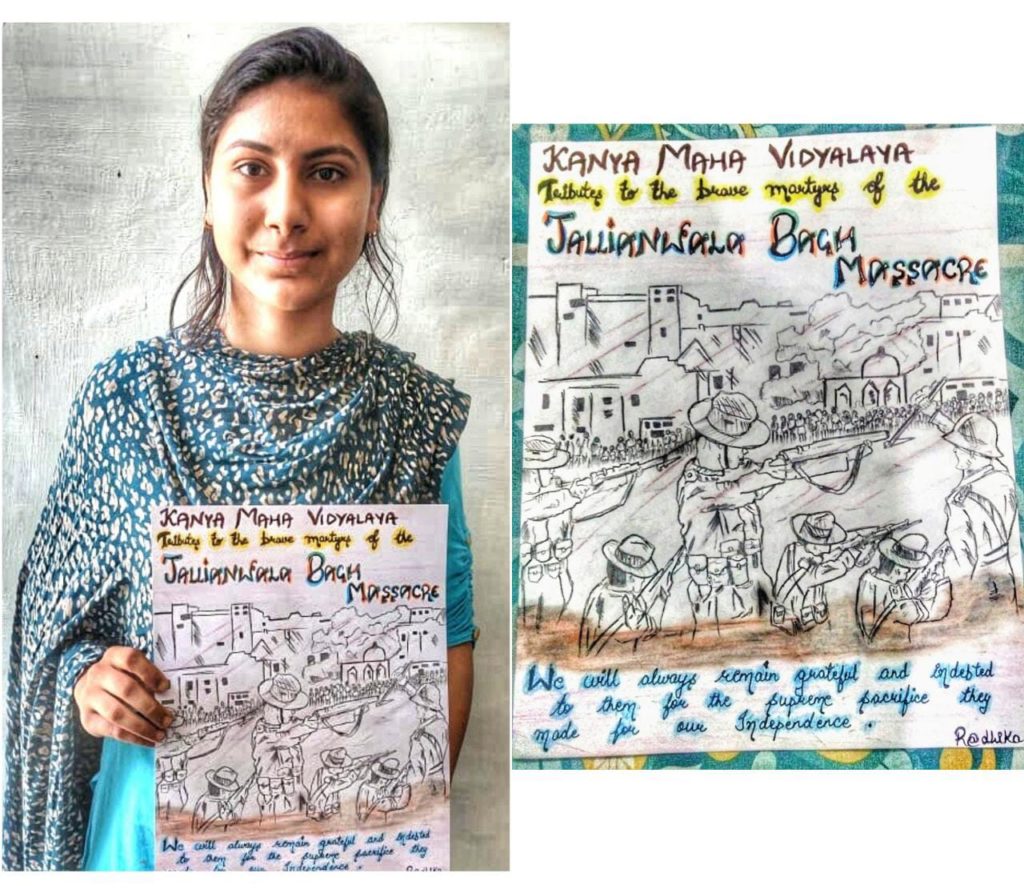 KANYA MAHA VIDYALAYA
Tributes to the brave martyrs of the
JALLIANWALA BAGH
MASSACRE
We will always remain grateful and Indebted
to them for the supreme sacrifice they
made for our Independence .
R@dhika
KANYA MAHA VIDYALAYA
Tributes to the brave martyrs of the
JALLIANWALA BAGH
MASSACRE
We will always remain grateful and Indebted
to them for the supreme sacrifice they
made for our Independence .
R@dhika